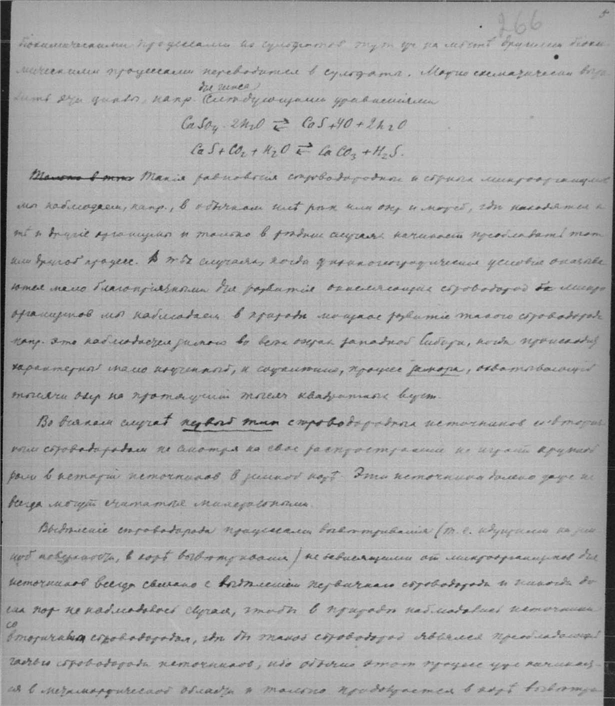 266
биохимическими процессами из сульфатов тут же на месте другими биохи-
мическими процессами переводится в сульфаты. Можно схематически выра-
зить эти, напр. следующими уравнениями
CaSO4 2H2O ⇄ CaS+4O+2H2O
CaS+CO2+H2O ⇄ CaCO3+H2S.
Такия равновесия сероводородных и серных микроорганизмов
мы наблюдаем, напр., в обычном иле рек или озер и морей, где находятся и
те и другие организмы и только в редких случаях начинает преобладать тот
или другой процесс. В тех случаях, когда физикогеографические условия оказыва-
ются мало благоприятными для развития окисляющих сероводород микро-
организмов мы наблюдаем в природе мощное развитие такого сероводорода
напр. это наблюдается зимою во всех озерах западной Сибири, когда происходит
характерный мало изученный, к сожалению, процесс замора, охватывающий
тысячи озер на протяжении тысяч квадратных верст.
Во всяком случае первый тип сероводородных источников со втори-
чным сероводородом не смотря на свое распространение не играет крупной
роли в истории источников в земной коре. Эти источники далеко даже не
всегда могут считаться минеральными.
Выделение сероводорода процессами выветривания (т.е. идущими на зем-
ной поверхности, в коре выветривания) не зависящими от микроорганизмов для
источников всегда связано с выделением первичного сероводорода и никогда до
сих пор не наблюдалось случая, чтобы в природе наблюдались источники
со вторичным сероводородом, где бы такой сероводород являлся преобладающей
частью сероводорода источников, ибо обычно этот процесс уже начинает-
ся в метаморфической области и только продолжается в коре выветри-